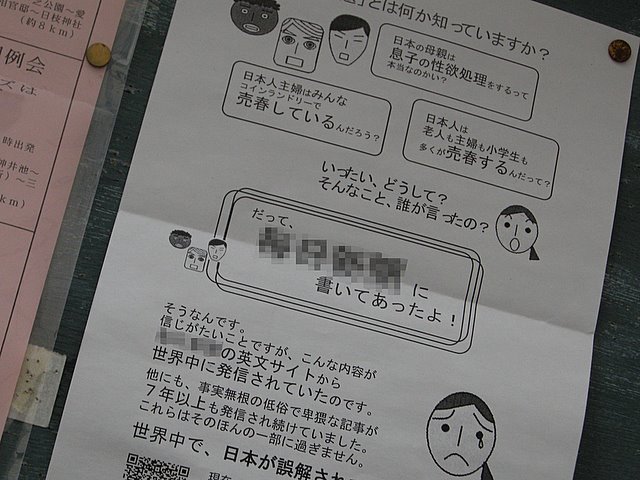 公園～愛
相官邸～日枝神社
(約8km)
例会
ズは
時出発
神井池～
～三
km)
とは何か知っていますか？
日本の母親は
息子の性欲処理をするって
本当なのかい？
日本人主婦はみんな
コインランドリーで
売春しているんだろう？
日本人は
老人も主婦も小学生も
多くが売春するんだって？
いったい、どうして？
そんなこと、誰が言ったの？
だって、
に
書いてあったよ！
そうなんです。
信じがたいことですが、こんな内容が
の英文サイトから
世界中に発信されていたのです。
他にも、事実無根の低俗で卑猥な記事が
7年以上も発信され続けていました。
これらはそのほんの一部に過ぎません。
世界中で、日本が誤解され
現在